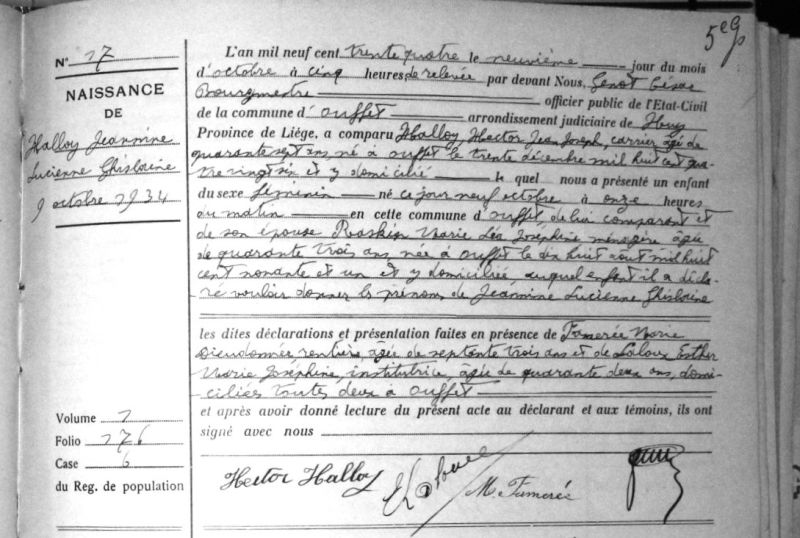 5e g
N° 17
NAISSANCE
DE
Halloy Jeannine
Lucienne Ghislaine
9 octobre 1934
L'an mil neuf cent trente quatre le neuvième jour du mois
d'octobre à cinq heures de relevée par devant Nous, Genot César
Bourgmestre officier public de l'Etat-Civil
de la commune d'ouffet arrondissement judiciaire de Huy
Province de Liége, a comparu Halloy Hector Jean Joseph, carrier, âgé de
quarante sept ans, né à ouffet le trente décembre mil huit cent qua-
tre vingt six et y domicilié le quel nous a présenté un enfant
du sexe féminin né ce jour neuf octobre à onze heures
du matin en cette commune d'ouffet de lui comparant et
de son épouse Raskin Marie Léa Joséphine ménagère âgée
de quarante trois ans, née à ouffet le dix huit aout mil huit
cent nonante et un et y domiciliée, auquel enfant il a décla-
ré vouloir donner les prénoms de Jeannine Lucienne Ghislaine
les dites déclarations et présentation faites en présence de Famerée Marie
Dieudonnée, rentière, âgée de septante trois ans et de Laloux Esther
Marie Joséphine, institutrice, âgée de quarante deux ans, domi-
ciliées toutes deux à ouffet
et après avoir donné lecture du présent acte au déclarant et aux témoins, ils ont
signé avec nous
Volume 1
Folio 176
Case 6
du Reg. de population
Hector Halloy
M. Famerée